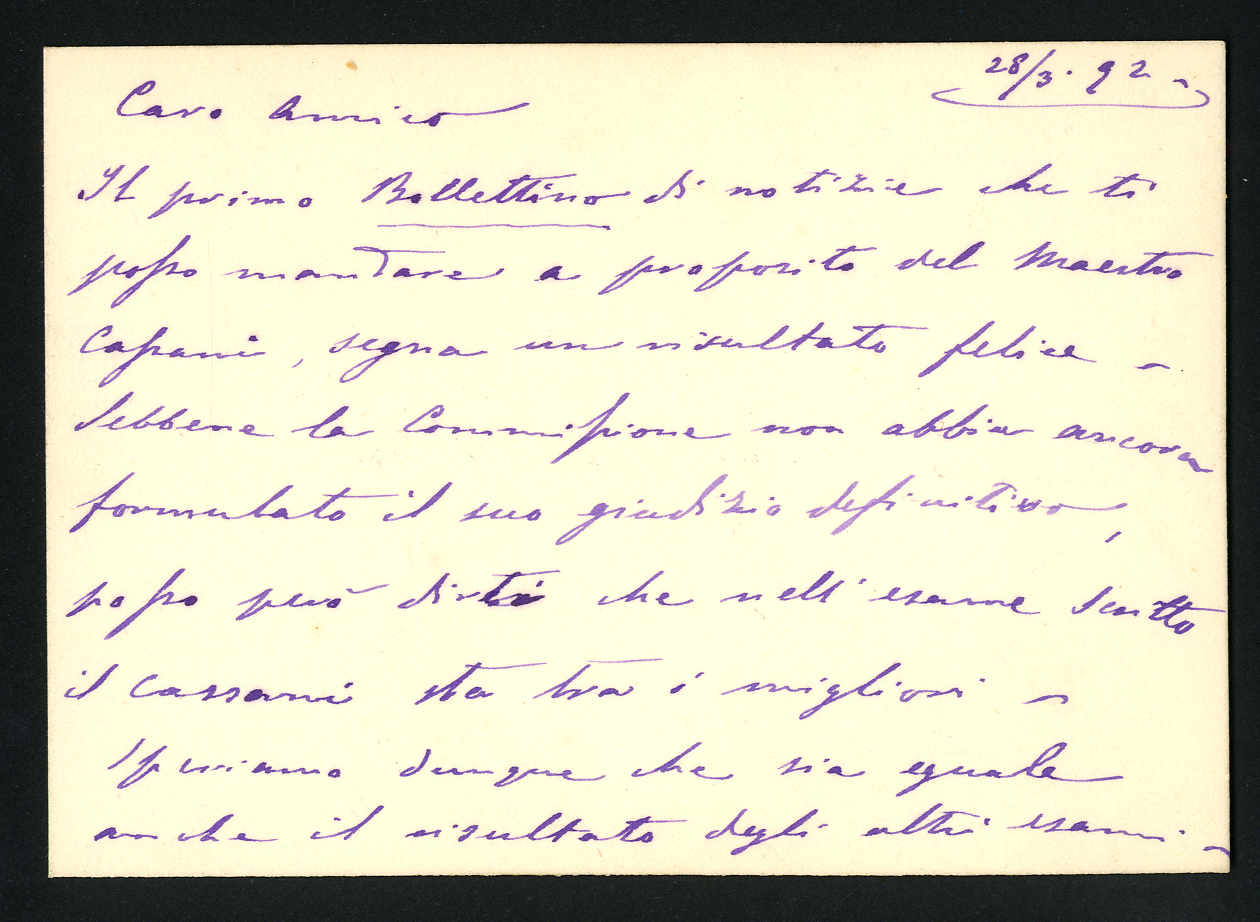 28/3. 92 -
Caro Amico
Il primo Bollettino di notizie che ti
posso mandare a proposito del Maestro
Cassani, segna un risultato felice -
Sebbene la Commissione non abbia ancora
formulato il suo giudizio definitivo,
posso però dirti che nell'esame scritto
il Cassani sta tra i migliori -
Speriamo dunque che sia eguale
anche il risultato degli altri esami. -